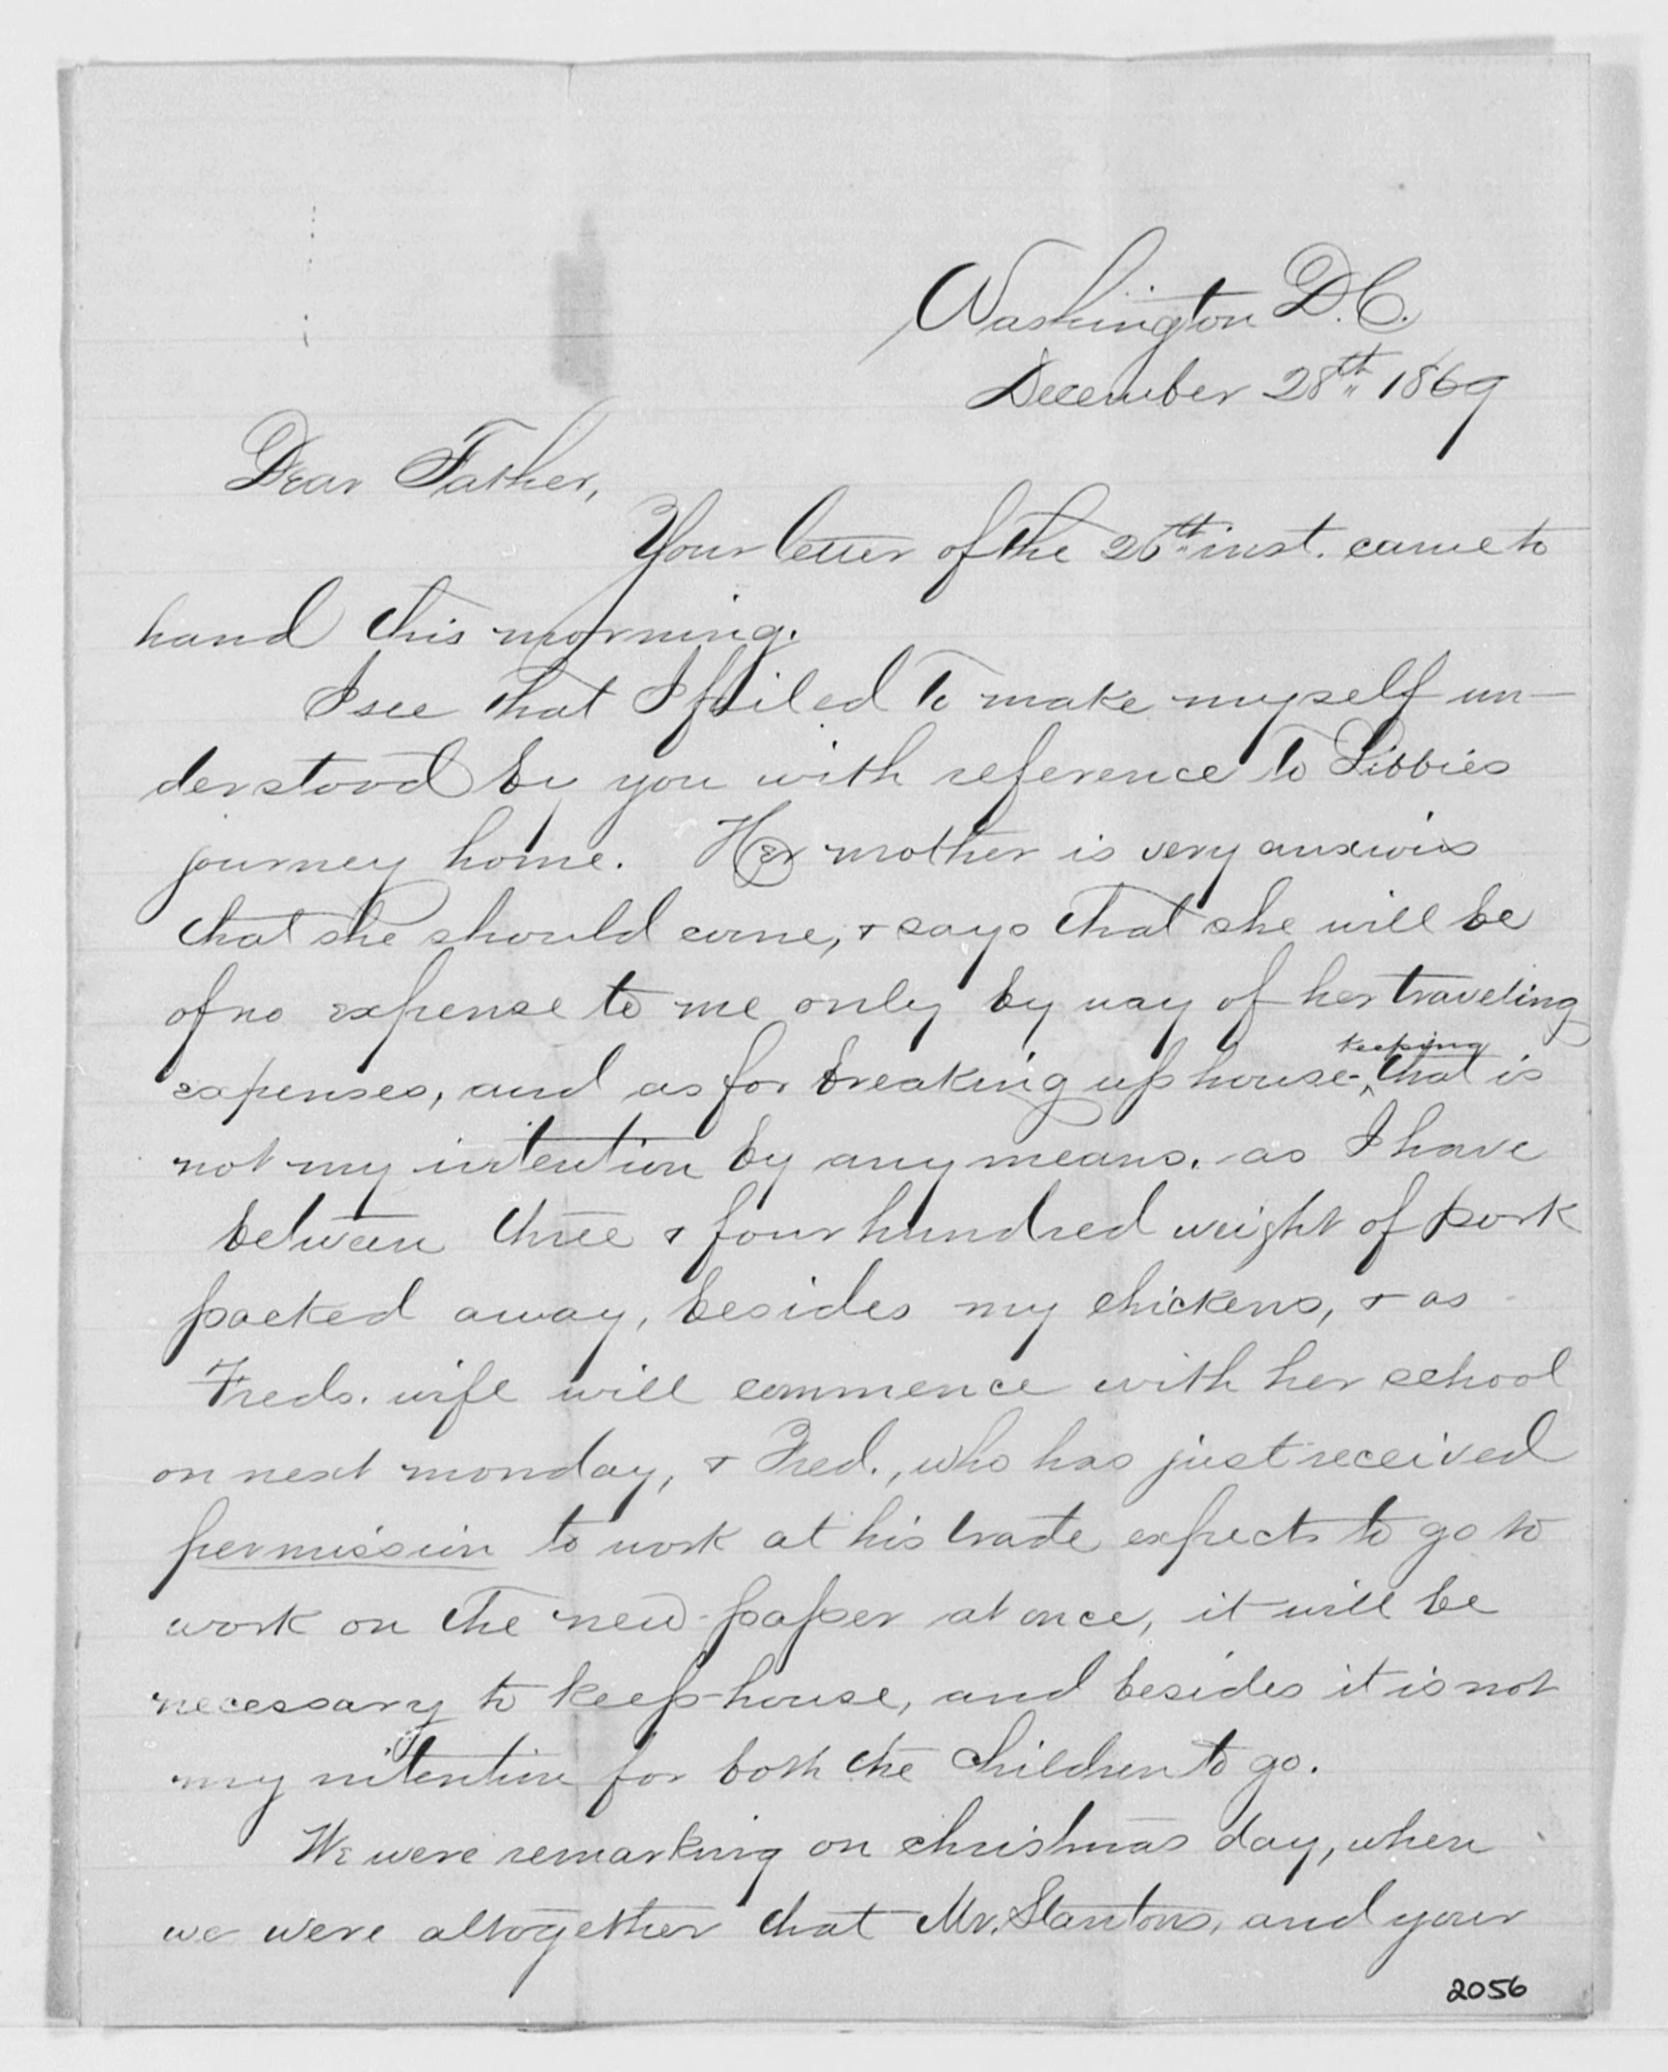 Washington D.C.
December 28th 1869
Dear Father,
Your letter of the 26th inst. came to
hand this morning.
I see that I failed to make myself un-
derstood by you with reference to Libbies
journey home. Her mother is very anxious
that she should come, & says that she will be
of no expense to me only by way of her traveling
expenses, and as for breaking up house-keeping that is
not my intention by any means. as I have
between three & four hundred weight of pork
packed away, besides my chickens, & as
Freds. wife will commence with her school
on next monday, & Fred., who has just received
permission to work at his trade expects to go to
work on the new paper at once, it will be
necessary to keep-house, and besides it is not
my intention for both the children to go.
We were remarking on christmas day, when
we were altogether that Mr. Stantons, and your
2056